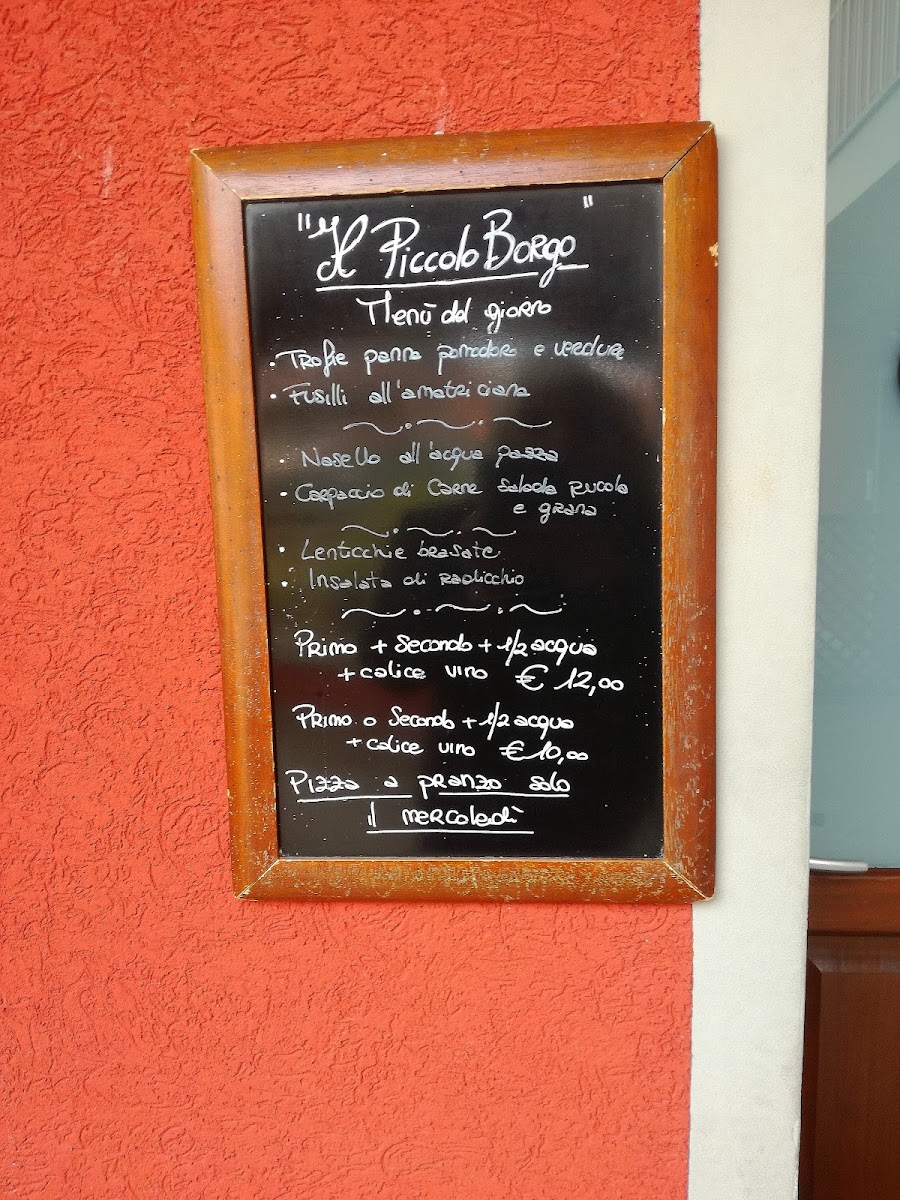 "Il Piccolo Borgo"
Menù del giorno
• Trofie panna pomodoro e verdure
• Fusilli all'amatriciana
• Nasello all'acqua pazza
• Carpaccio di Carne Salada rucola
e grana
• Lenticchie brasate
• Insalata di radicchio
Primo + Secondo + 1/2 acqua
+ calice vino € 12,00
Primo o Secondo + 1/2 acqua
+ calice vino € 10,00
Pizza a pranzo solo
il mercoledì